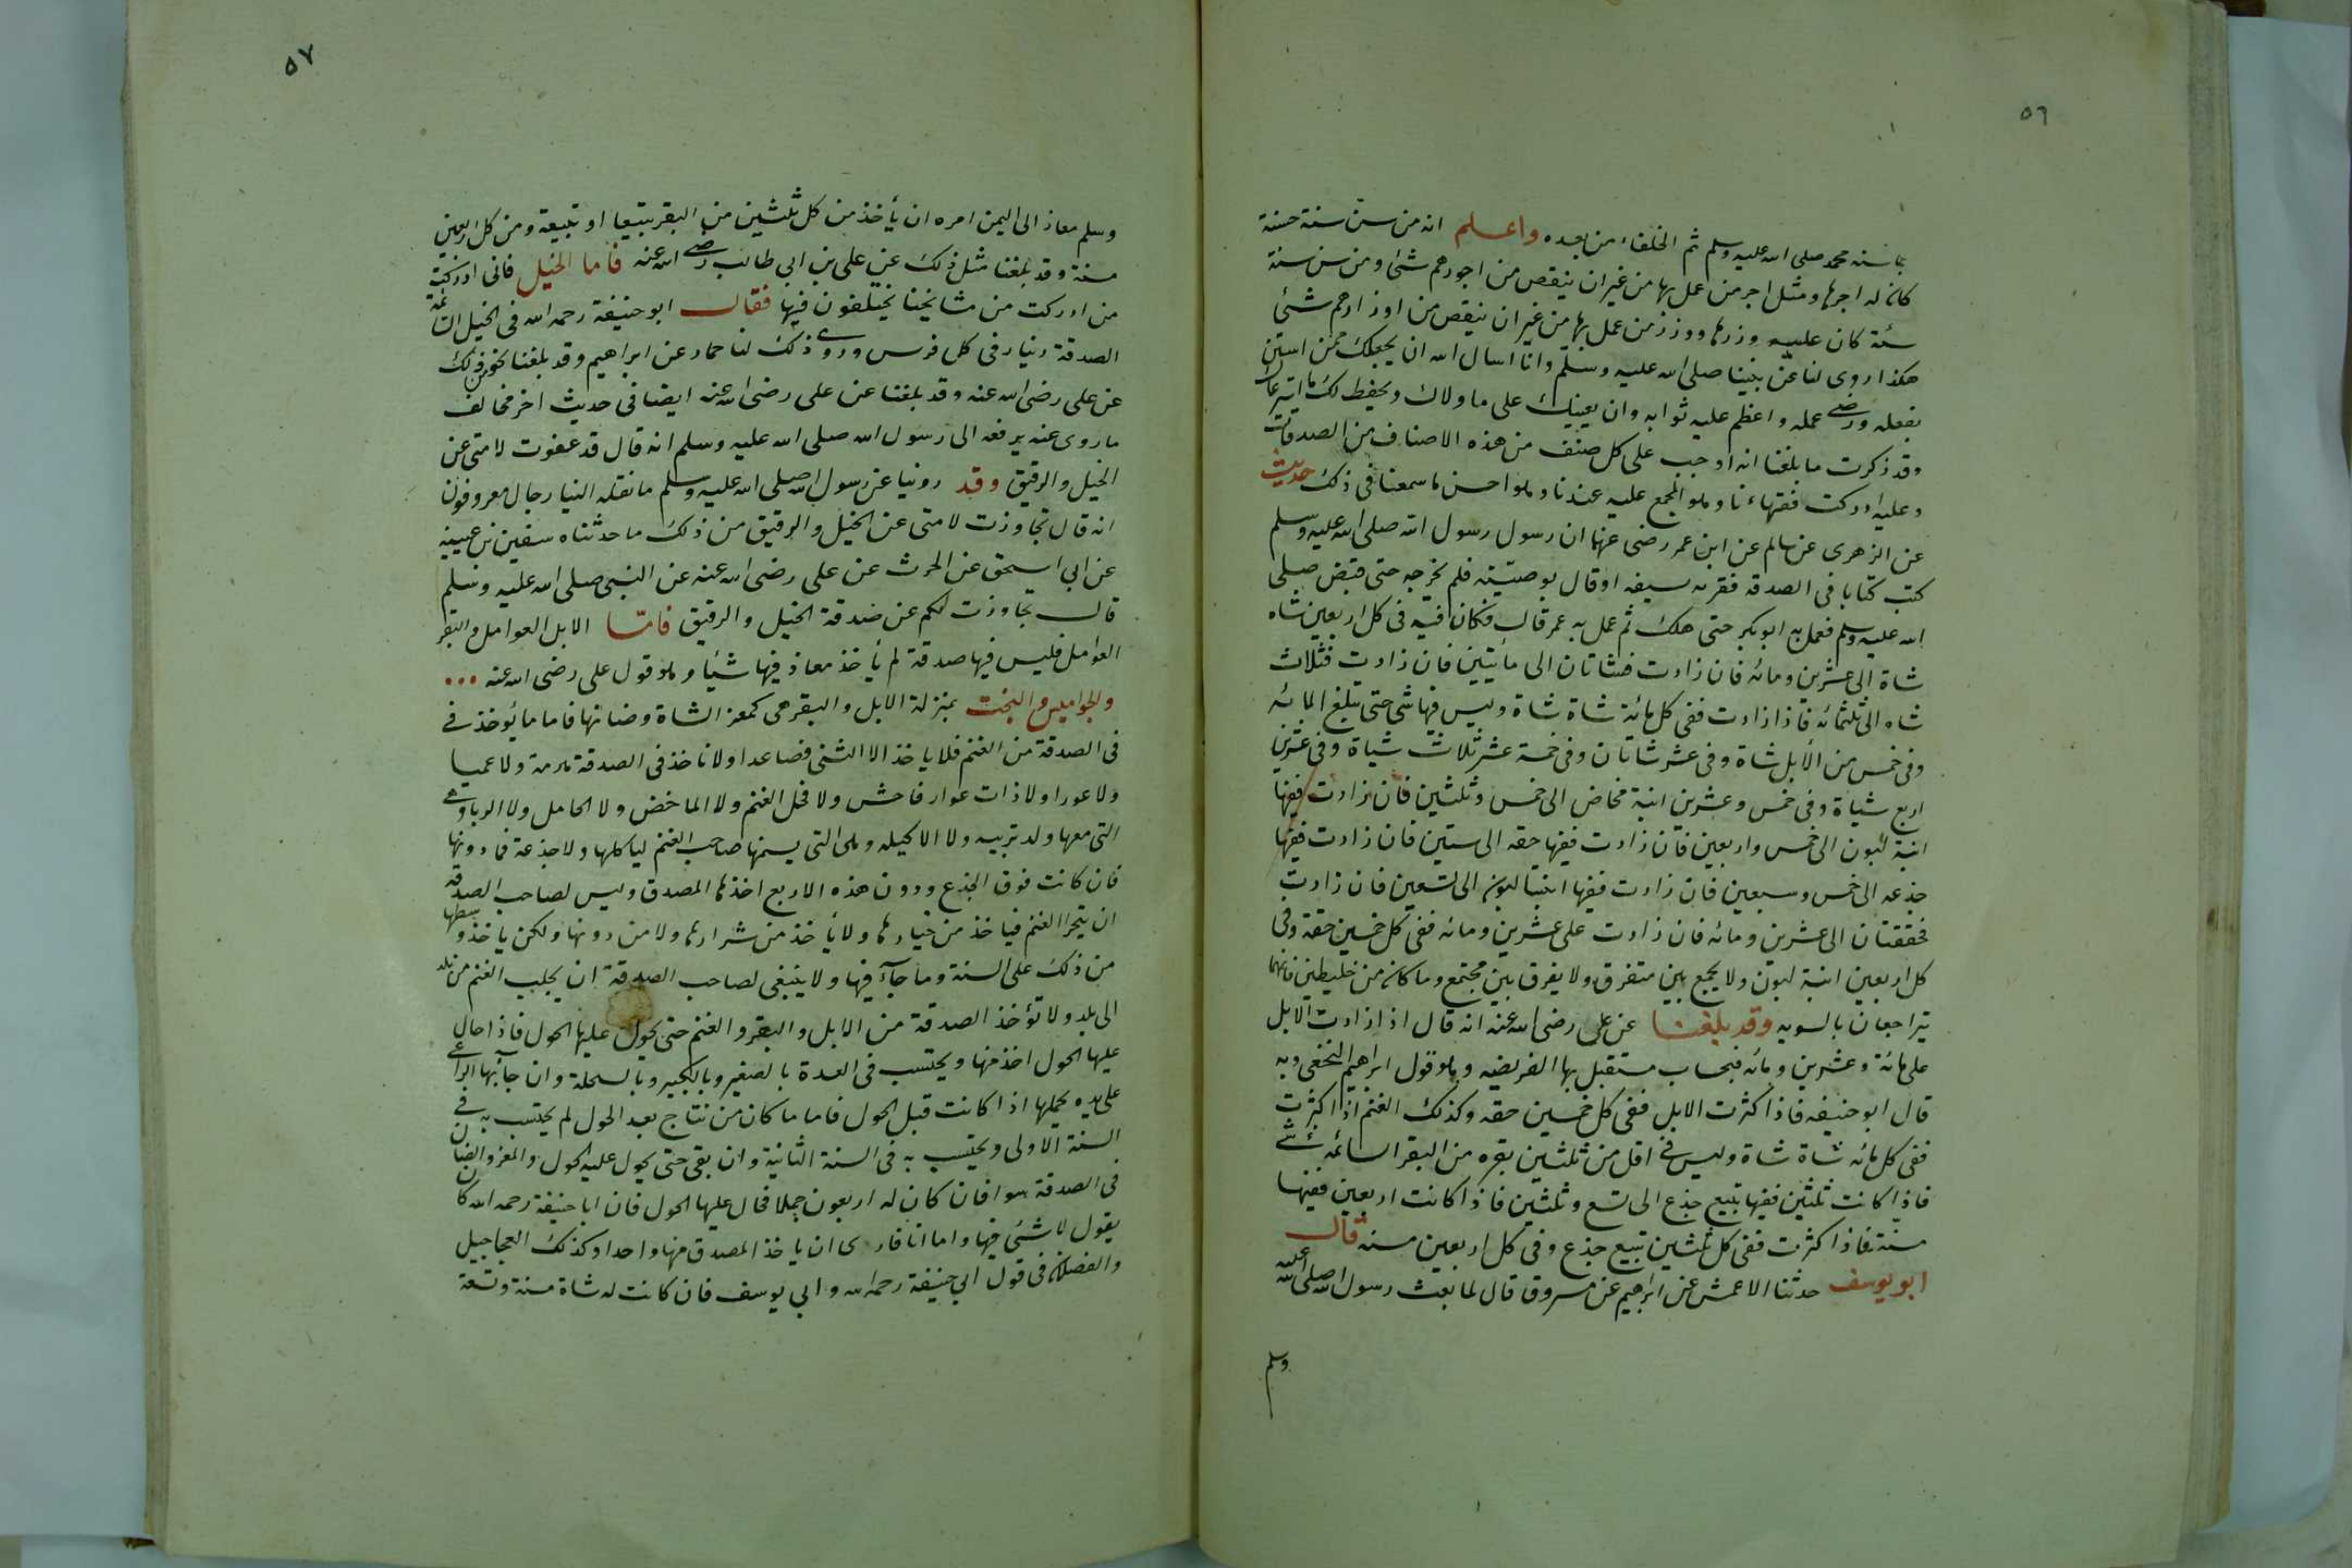 ٥٦
بما سنه محمد صلى الله عليه وسلم ثم الخلفاء من بعده واعلم انه من سن سنة حسنة
كان له اجرها ومثل اجر من عمل بها من غير ان ينقص من اجورهم شئ ومن سن سنة
سيئة كان عليه وزرها ووزر من عمل بها من غير ان ينقص من اوزارهم شئ
هكذا روى لنا عن نبينا صلى الله عليه وسلم وانا اسال الله ان يجعلك ممن استن
بفعله ورضى عمله واعظم عليه ثوابه وان يعينك على ما ولاك ويحفظ لك ما استرعاك
وقد ذكرت ما بلغنا انه اوجب على كل صنف من هذه الاصناف من الصدقات
وعليه ادركت فقهاءنا وهو المجمع عليه عندنا وهو احسن ما سمعنا فى ذلك حديث
عن الزهرى عن سالم عن ابن عمر رضى عنهما ان رسول رسول الله صلى الله عليه وسلم
كتب كتابا فى الصدقه فقرنه سيفه او قال بوصيته فلم يخرجه حتى قبض صلى
الله عليه وسلم فعمل به ابو بكر حتى هلك ثم عمل به عمر قال فكان فيه فى كل اربعين شاه
شاة الى عشرين ومائه فان زادت فشاتان الى مائيتين فان زادت فثلاث
شاه الى ثلثمائه فاذا زادت ففى كل مائة شاة شاة وليس فيها شى حتى تبلغ المائه
وفى خمس من الأبل شاة وفى عشر شاتان وفى خمسة عشر ثلاث شياة وفى عشرين
اربع شياة وفى خمس وعشرين ابنة مخاض الى خمس وثلثين فان زادت ففيها
ابنة لبون الى خمس واربعين فان زادت ففيها حقه الى ستين فان زادت ففيها
جذعه الى خمس وسبعين فان زادت ففيها ابنتا لبون الى تسعين فان زادت
فحقتان الى عشرين ومائه فان زادت على عشرين ومائه ففى كل خمسين حقة وفى
كل اربعين ابنة لبون ولا يجمع بين متفرق ولا يفرق بين مجتمع وما كان من خليطين فانهما
يتراجعان بالسويه وقد بلغنا عن على رضى الله عنه انه قال اذا زادت الابل
على مائة وعشرين ومائه فبحساب مستقبل بها الفريضه وهو قول ابراهيم النخعى وبه
قال ابو حنيفه فاذا كثرت الابل ففى كل خمسين حقه وكذلك الغنم اذا كثرت
ففى كل مائه شاة شاة وليس فى اقل من ثلثين بقره من البقر السائمه شئ
فاذا كانت ثلثين ففيها تبيع جذع الى تسع وثلثين فاذا كانت اربعين ففيها
مسنة فاذا كثرت ففى كل ثلثين تبيع جذع وفى كل اربعين مسنه قال
ابو يوسف حدثنا الاعمش عن ابراهيم عن مسروق قال لما بعث رسول الله صلى الله عليه
وسلم
٥٧
وسلم معاذ الى اليمن امره ان يأخذ من كل ثلثين من البقر تبيعا او تبيعة ومن كل اربعين
مسنة وقد بلغنا مثل ذلك عن على بن ابى طالب رضى الله عنه فأما الخيل فانى ادركت
من ادركت من مشايخنا يختلفون فيها فقال ابو حنيفة رحمه الله فى الخيل السائمة
الصدقة دينار فى كل فرس وروى ذلك لنا حماد عن ابراهيم وقد بلغنا نحو من ذلك
عن على رضى الله عنه وقد بلغنا عن على رضى الله عنه ايضا فى حديث اخر مخالف
ما روى عنه يرفعه الى رسول الله صلى الله عليه وسلم انه قال قد عفوت لامتى عن
الخيل والرقيق وقد روينا عن رسول الله صلى الله عليه وسلم ما نقله الينا رجال معروفون
انه قال تجاوزت لامتى عن الخيل والرقيق من ذلك ما حدثناه سفين بن عيينه
عن ابى اسحق عن الحرث عن على رضى الله عنه عن النبى صلى الله عليه وسلم
قال تجاوزت لكم عن صدقة الخيل والرقيق فامّا الابل العوامل والبقر
العوامل فليس فيها صدقة لم يأخذ معاذ فيها شيأ وهو قول على رضى الله عنه ...
والجواميس والبخت بمنزلة الابل والبقر هى كمعز الشاة وضانها فاما ما يؤخذ فى
فى الصدقة من الغنم فلا ياخذ الا الثنى فصاعدا ولا تاخذ فى الصدقة هرمة ولا عميا
ولا عورا ولا ذات عوار فاحش ولا فحل الغنم ولا الماخض ولا الحامل ولا الربا وهى
التى معها ولد تربيه ولا الاكيله وهى التى يسمنها صاحب الغنم لياكلها ولا جذعة فما دونها
فان كانت فوق الجذع ودون هذه الاربع اخذها المصدق وليس لصاحب الصدقه
ان يتخير الغنم فياخذ من خيارها ولا يأخذ من شرارها ولا من دونها ولكن ياخذ وسطها
من ذلك على السنة وما جآء فيها ولا ينبغى لصاحب الصدقة ان يجلب الغنم من بلد
الى بلد ولا تؤخذ الصدقة من الابل والبقر والغنم حتى يحول عليها الحول فاذا حال
عليها الحول اخذ منها ويحتسب فى العدة بالصغير وبالكبير وبالسخلة وان جآء بها الراعى
على يده يحملها اذا كانت قبل الحول فاما ما كان من نتاج بعد الحول لم يحتسب به فى
السنة الاولى ويحتسب به فى السنة الثانية وان بقى حتى يحول عليه الحول والمعز والضان
فى الصدقة سوا فان كان له اربعون حملا فحال عليها الحول فان ابا حنيفة رحمه الله كان
يقول لا شئ فيها واما انا فارى ان ياخذ المصدق منها واحدا وكذلك العجاجيل
والفصلان فى قول ابى حنيفة رحمه الله وابى يوسف فان كانت له شاة مسنة وتسعة